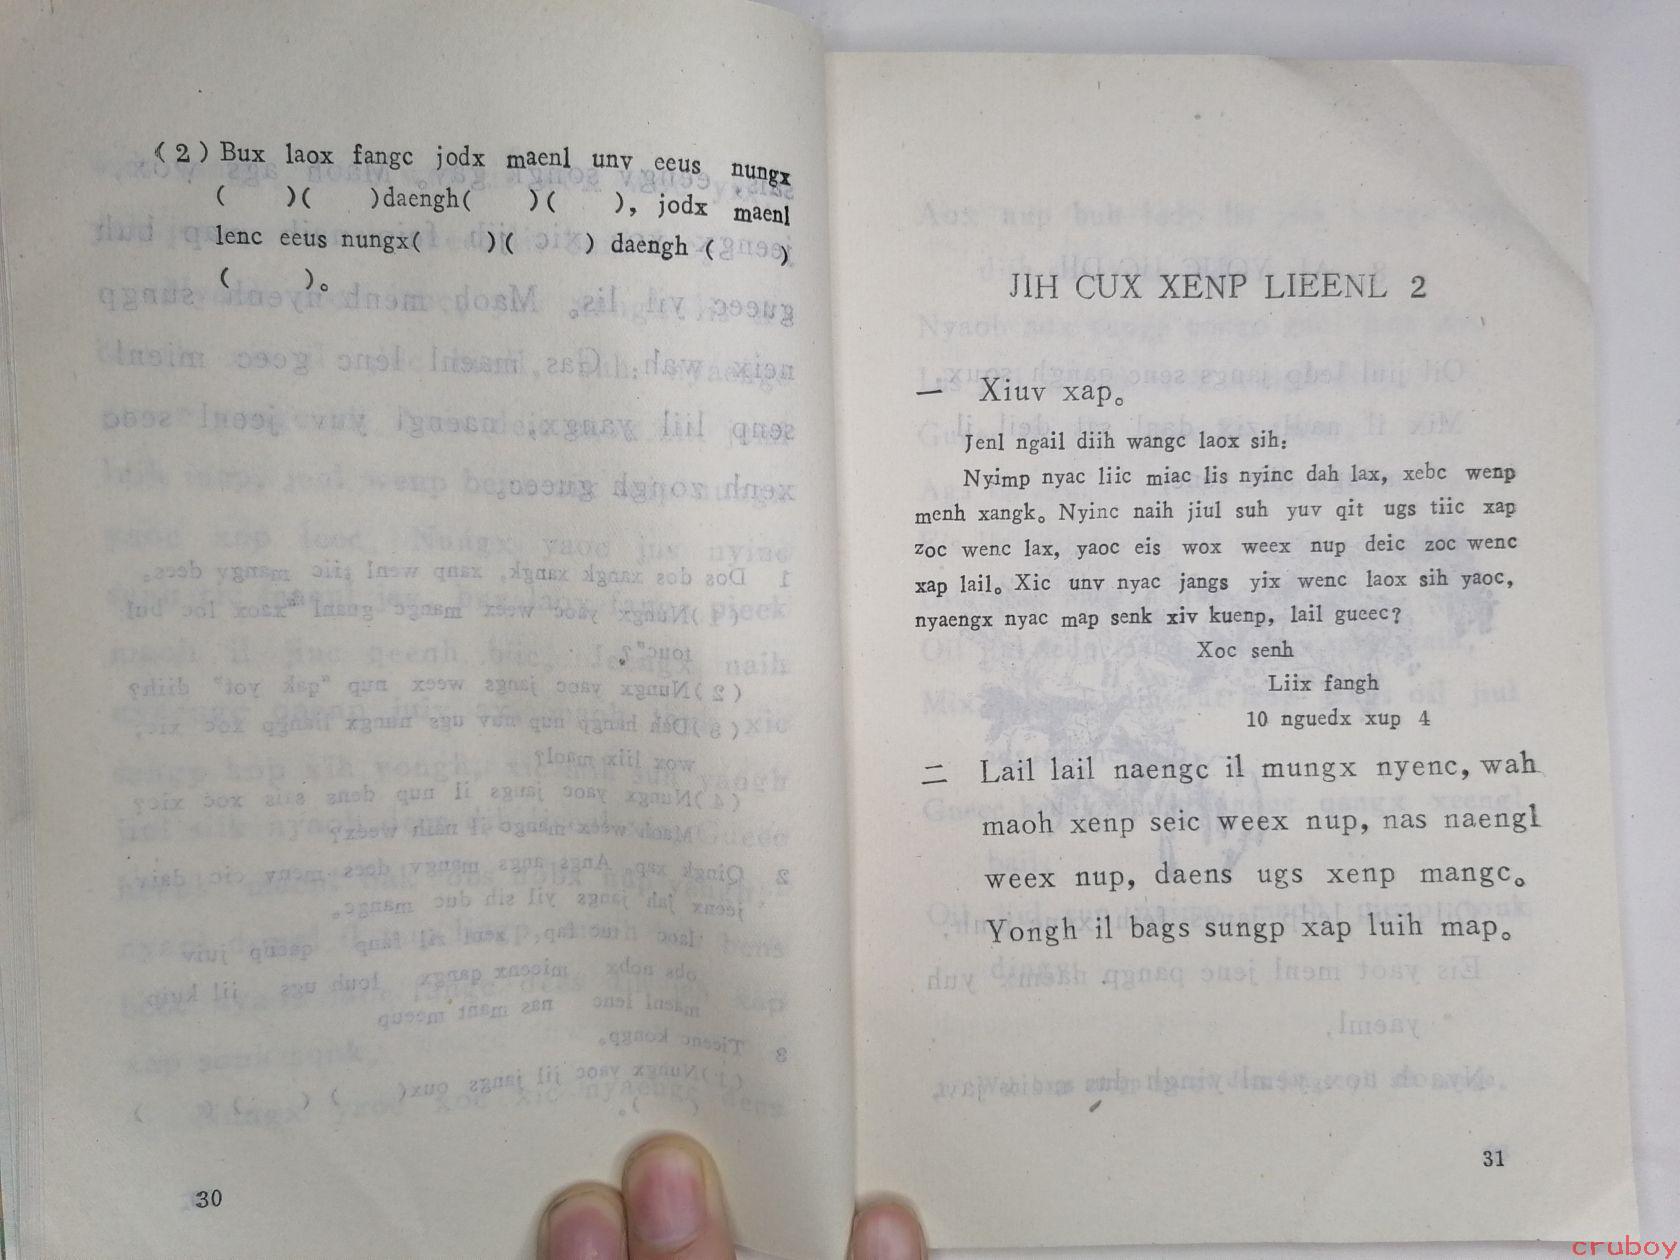 (2) Bux laox fangc jodx maenl unv eeus nungx
(    )(    )daengh(    )(    ), jodx maenl
lenc eeus nungx(    )(    ) daengh (    )
(    )。
30
JIH CUX XENP LIEENL 2
一 Xiuv xap。
Jenl ngail diih wangc laox sih:
Nyimp nyac liic miac lis nyinc dah lax, xebc wenp
menh xangk。Nyinc naih jiul suh yuv qit ugs tiic xap
zoc wenc lax, yaoc eis wox weex nup deic zoc wenc
xap lail。Xic unv nyac jangs yix wenc laox sih yaoc,
nyaengx nyac map senk xiv kuenp, lail gueec?
Xoc senh
Liix fangh
10 nguedx xup 4
二 Lail lail naengc il mungx nyenc, wah
maoh xenp seic weex nup, nas naengl
weex nup, daens ugs xenp mangc。
Yongh il bags sungp xap luih map。
31
cruboy